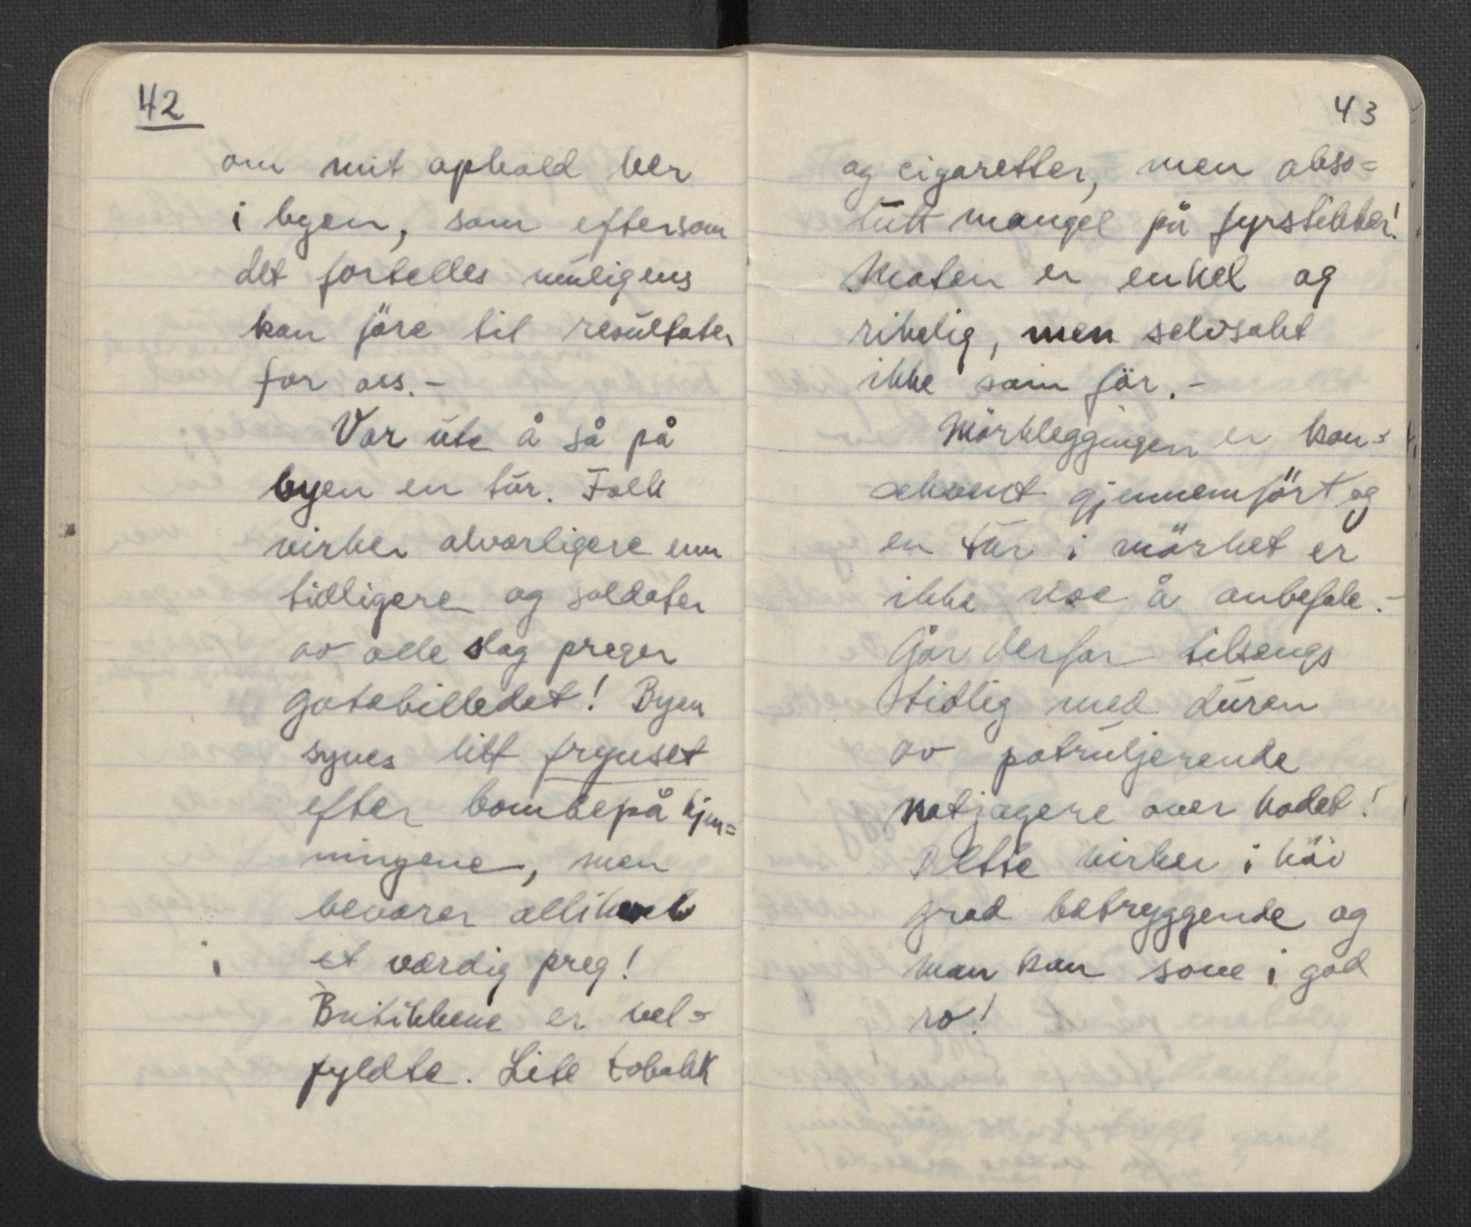 42
om mit ophold her
i byen, som eftersom
det fortelles muligens
kan före til resultater
for oss.-
Var ute å så på
byen en tur. Folk
virker alvorligere enn
tidligere og soldater
av alle slag preger
gatebilledet! Byen
synes litt frynset
efter bombepåkjen=
ningene, men
bevarer allikevel
et værdig preg!
Butikkene er vel-
fyldte. Lite tobakk
43
og cigaretter, men abso=
lutt mangel på fyrstikker!
Maten er enkel og
rikelig, men selvsakt
ikke som för.-
Mörkleggingen er kon-
sekvent gjennemfört og
en tur i mörket er
ikke noe å anbefale.-
Går derfor tilsengs
tidlig med duren
av patruljerende
natjagere over hodet!
Dette virker i höi
grad betryggende og
man kan sove i god
ro!